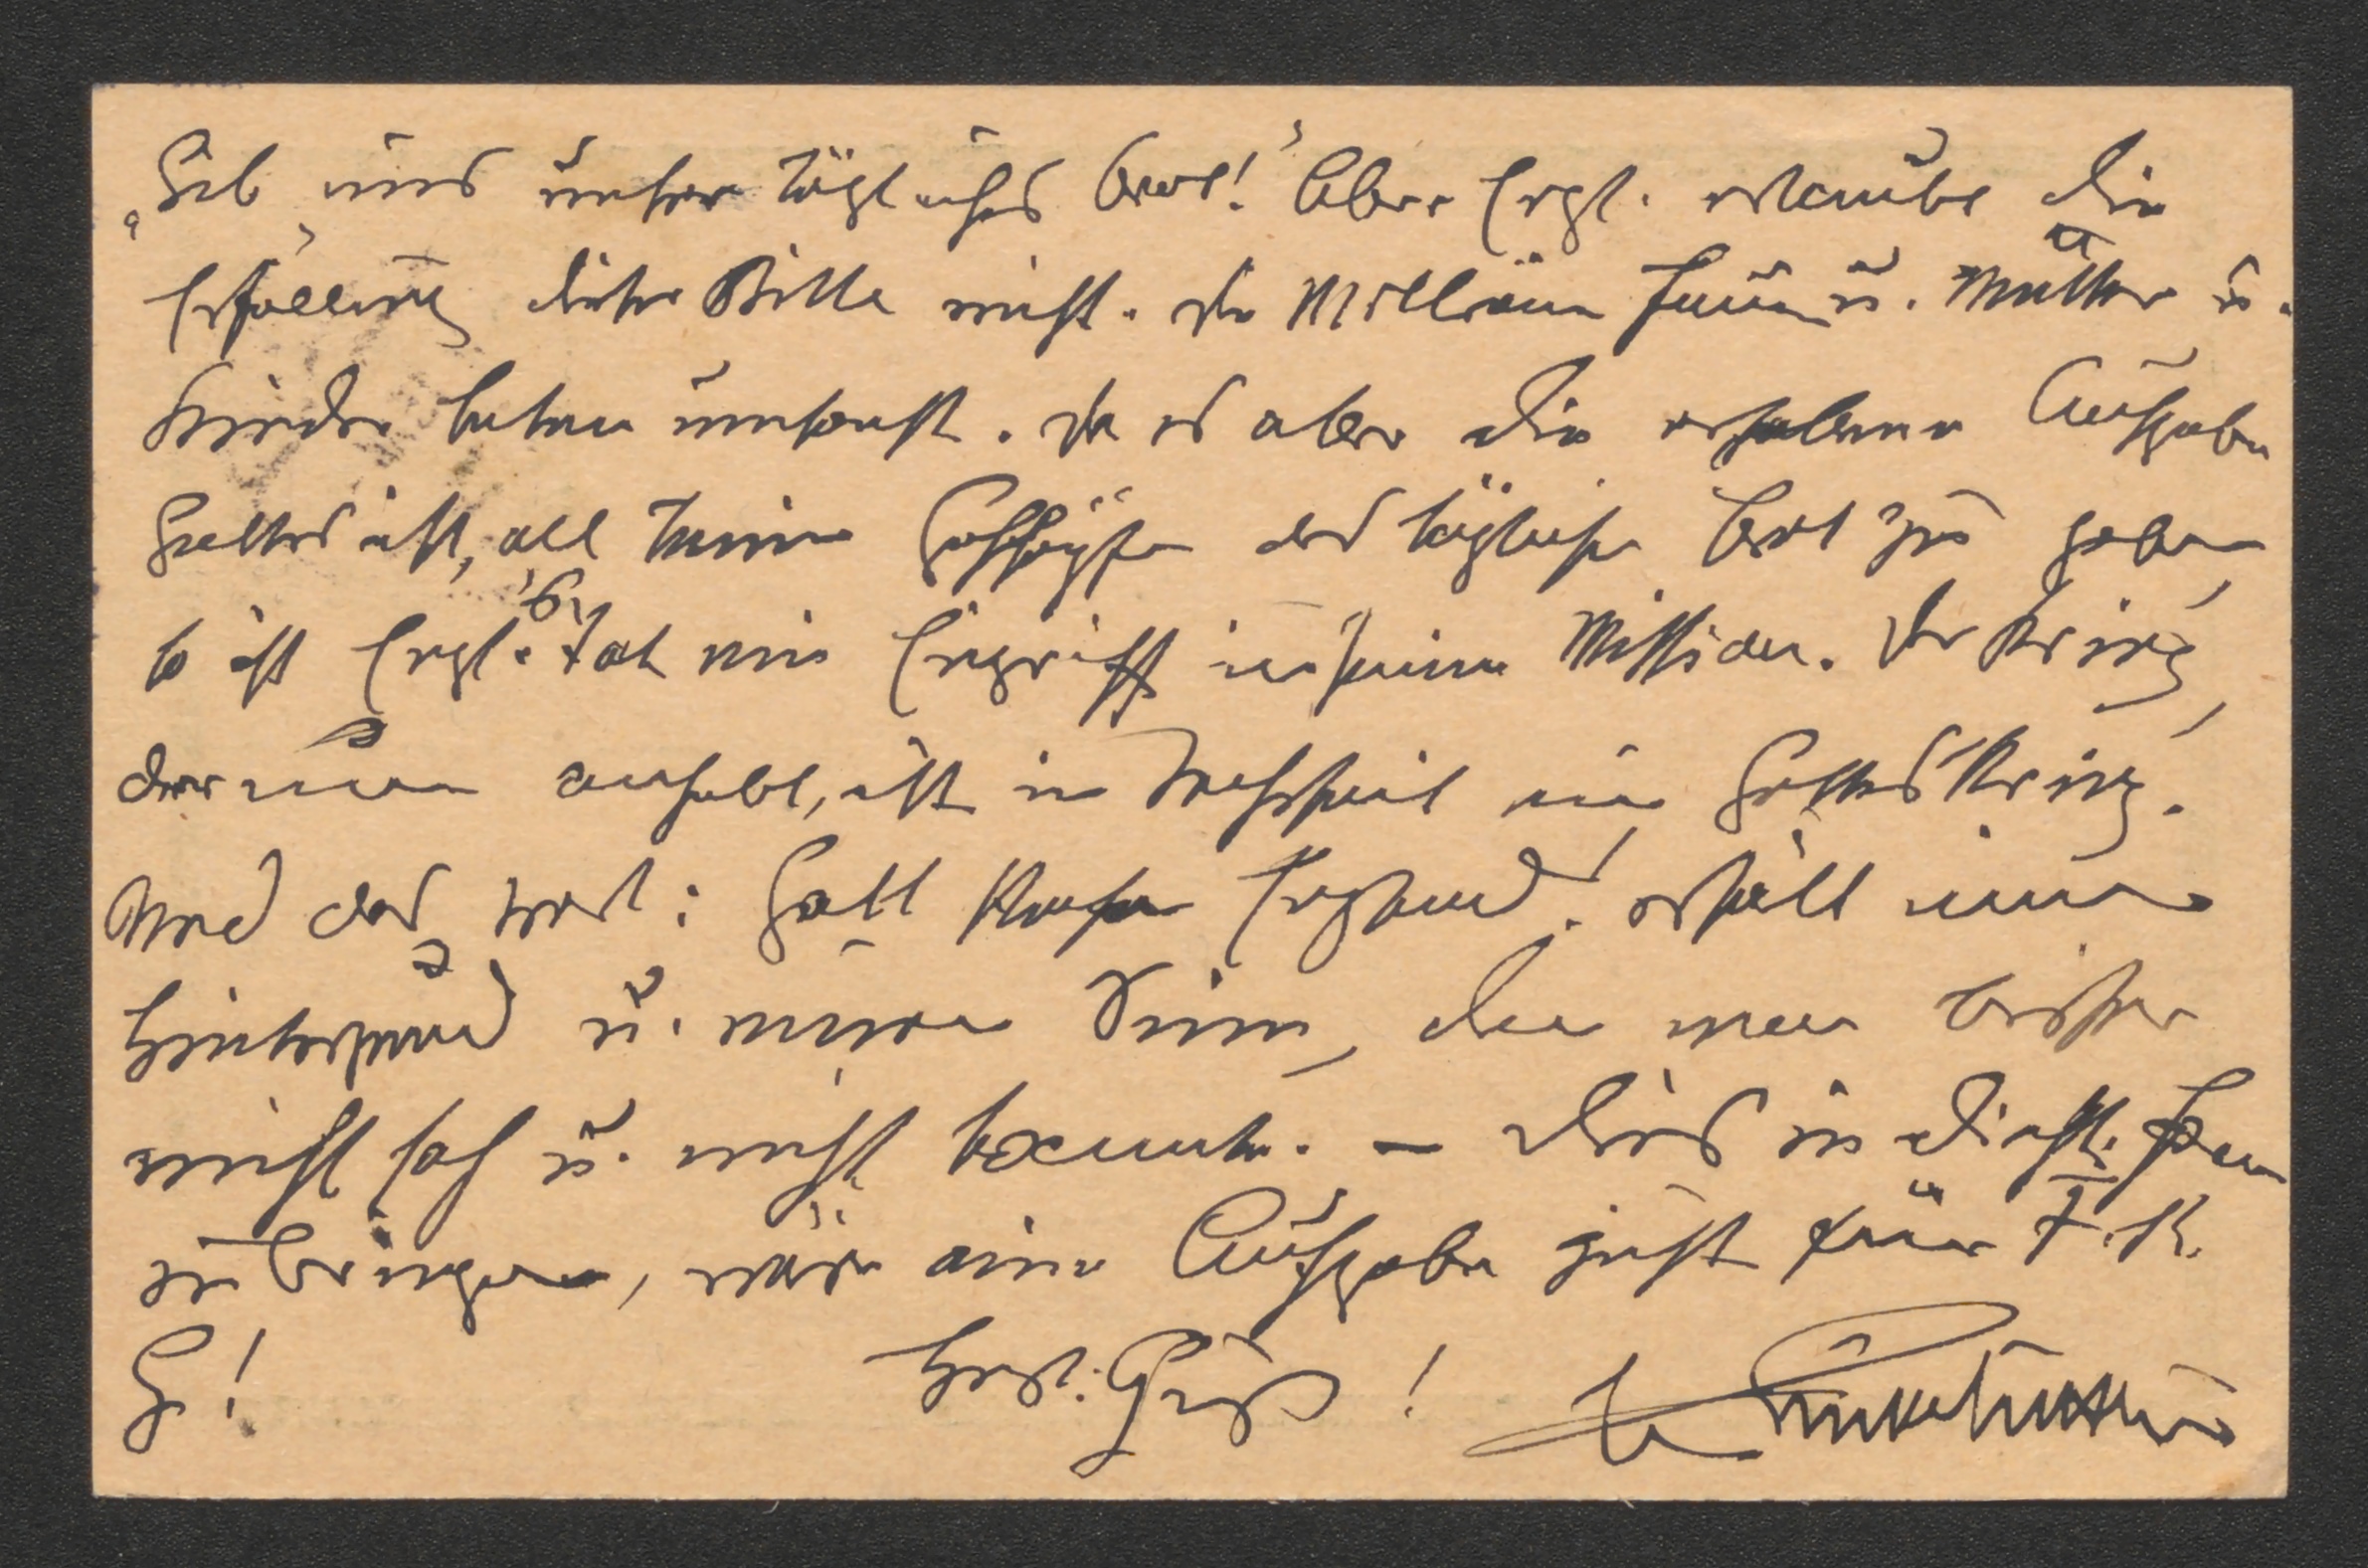 „Gib uns unser tägliches Brot!“ Aber Engl. erlaubt die
Erfüllung dieser Bitte nicht. Die Millionen Frauen u. Mütter u.
Kinder beten umsonst. Da es aber die erhabene Aufgabe
Gottes ist, all seinen Geschöpfen das tägliche Brot zu geben,
so ist Engl.s Tat ein Eingriff in seine Mission. Der Krieg,
der nun anhebt, ist in Wahrheit ein Gotteskrieg.
Und das Wort: Gott strafe England! erhält einen
Hintergrund u. einen Sinn, den man bisher
nicht sah u. nicht kannte. – Dies in dicht. Form
zu bringen, wäre eine Aufgabe just für F. K.
G! Herzl. Gruß!